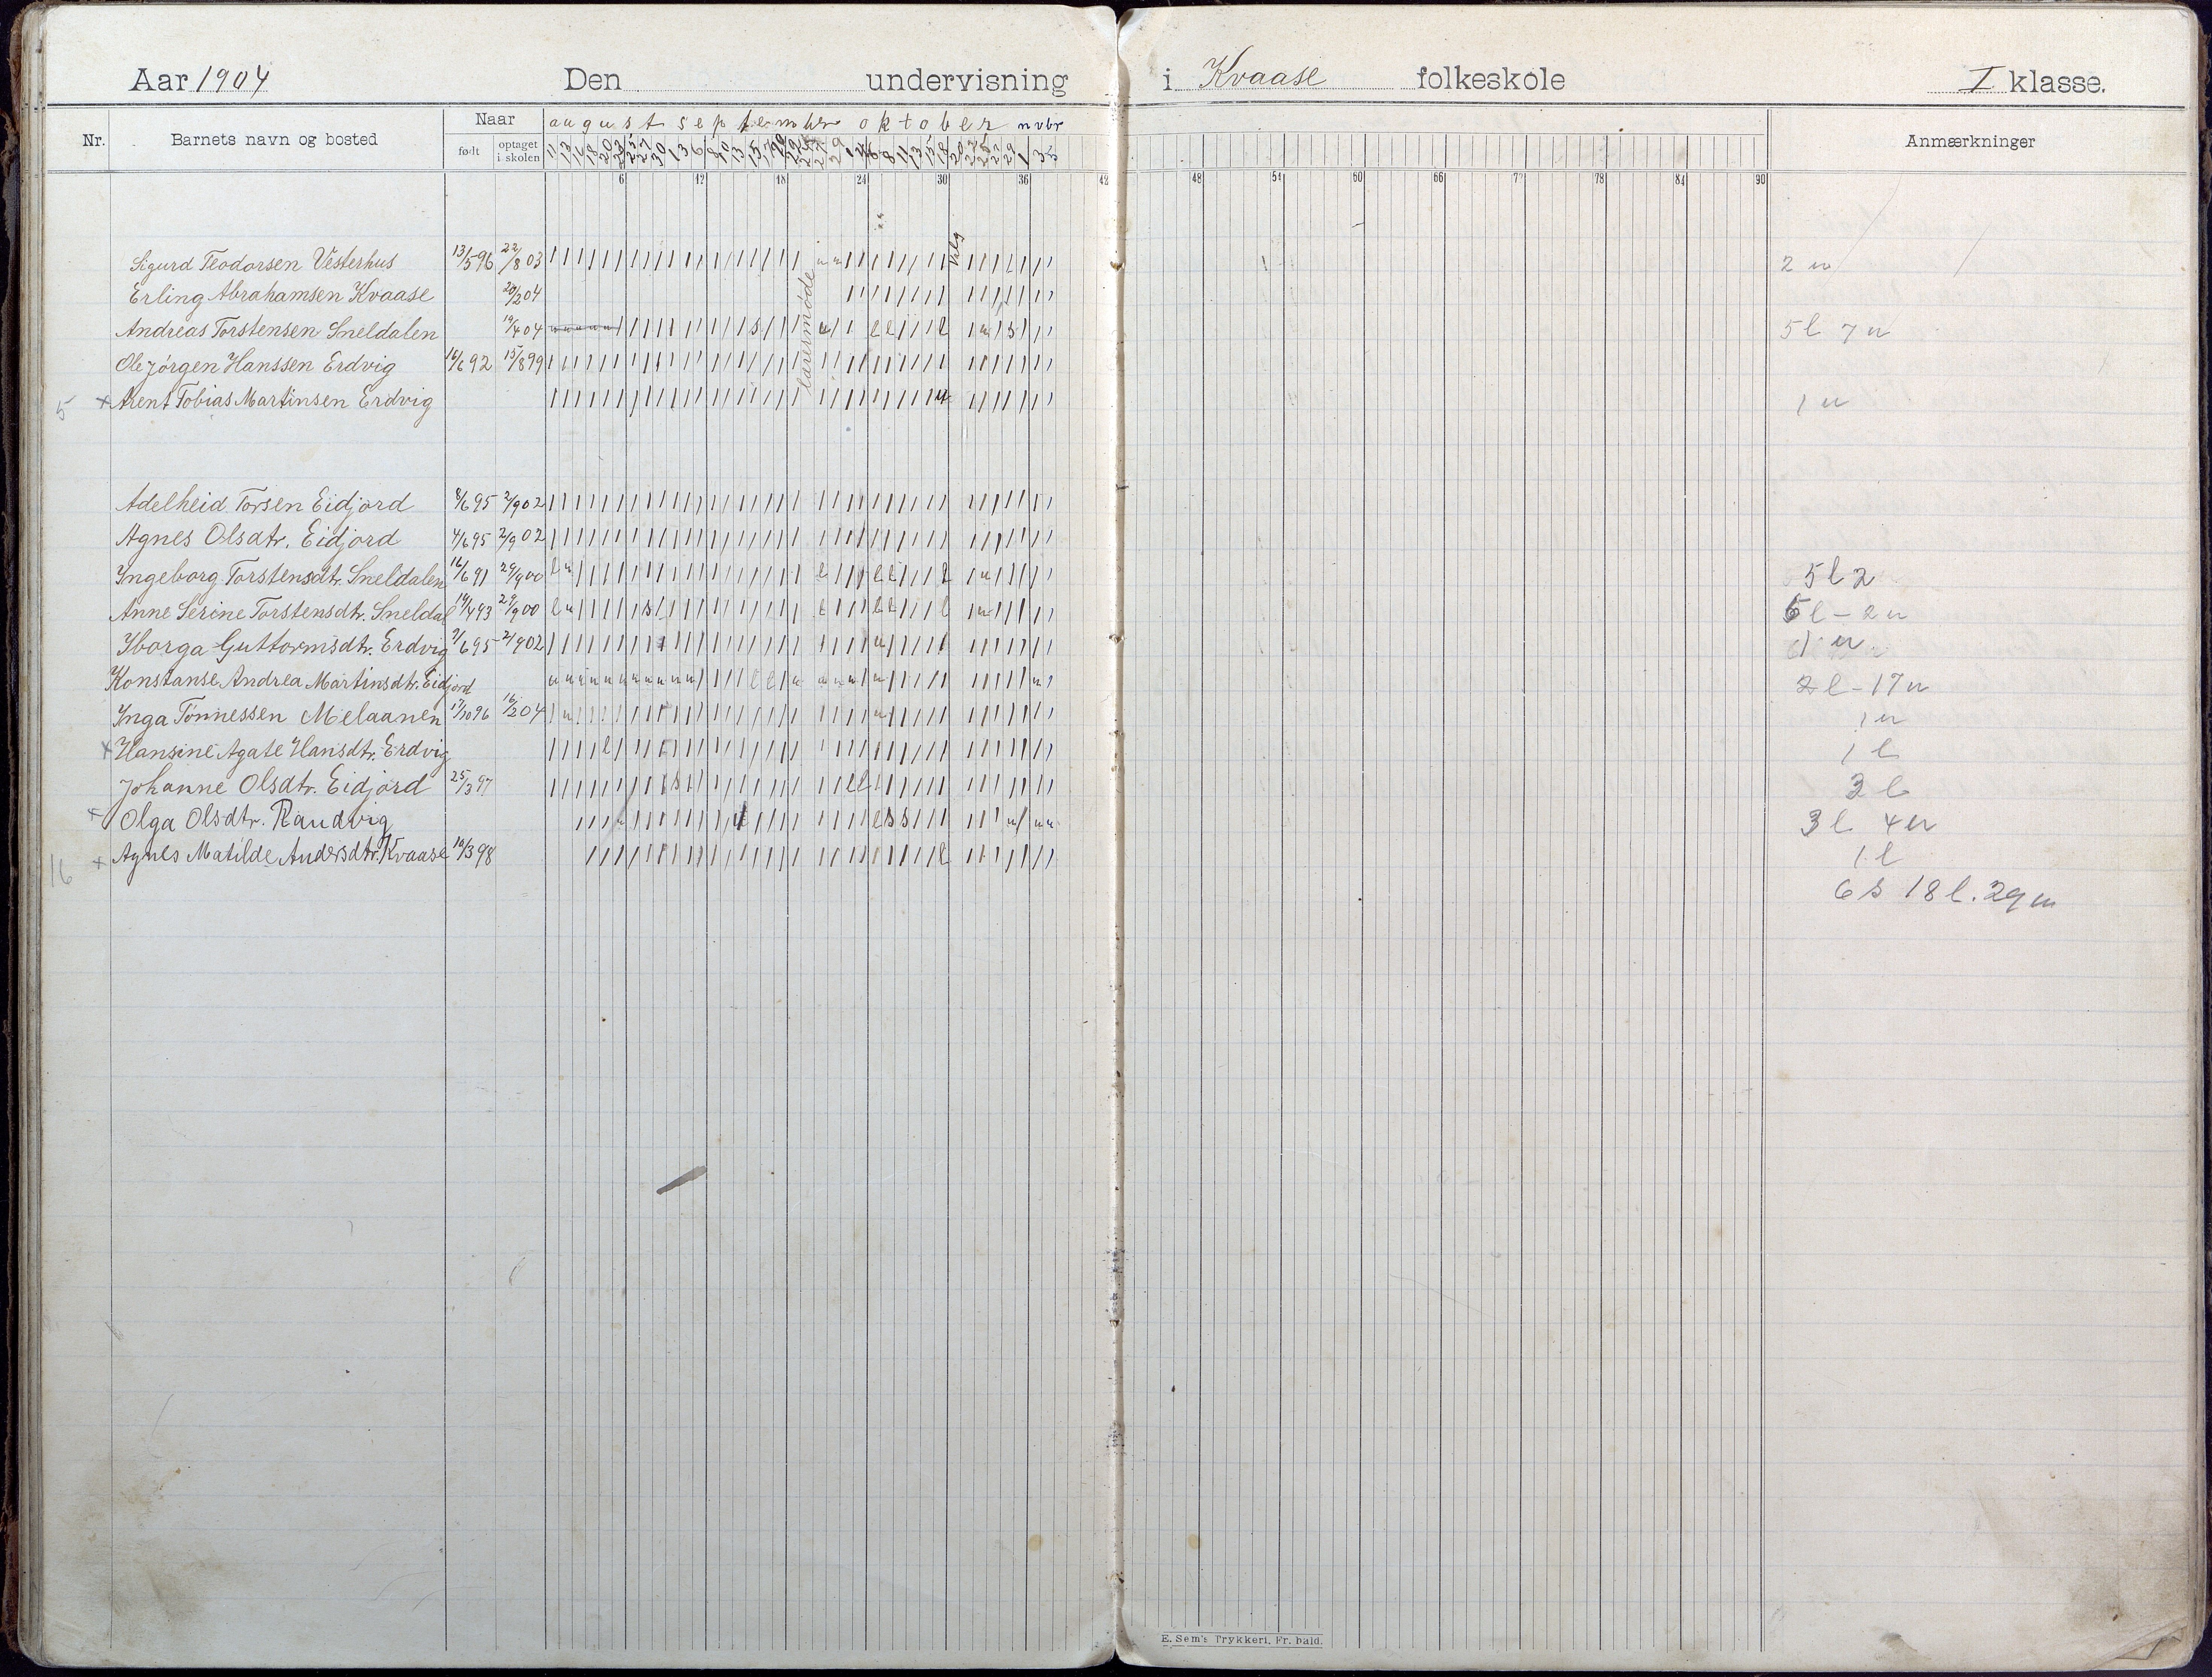 Aar 1904 Den undervisning i Kvaase folkeskole I klasse.
Nr. Barnets navn og bosted Naar født optaget i skolen august september oktober nvbr Anmærkninger
6 12 18 24 30 36 42 48 54 60 66 72 78 84 90
Valg
lærermøde
Sigurd Teodorsen Vesterhus 13/5 96 22/8 03 2 u
Erling Abrahamsen Kvaase 20/2 04
Andreas Torstensen Sneldalen 19/4 04 5 l 7 u
Ole Jørgen Hanssen Erdvig 16/6 92 15/8 99
5 x Arent Tobias Martinsen Erdvig 1 u
Adelheid Torsen Eidjord 8/6 95 2/9 02
Agnes Olsdtr. Eidjord 4/6 95 2/9 02
Ingeborg Torstensdtr. Sneldalen 16/6 91 29/9 00 5 l 2
Anne Serine Torstensdtr. Sneldal 19/4 93 29/9 00 5 l - 2 u
Iborga Guttormsdtr. Erdvig 2/6 95 2/9 02 1 u
Konstanse Andrea Martinsdtr. Eidjord 2 l - 17 u
Inga Tønnessen Melaanen 17/10 96 16/2 04 1 u
x Hansine Agate Hansdtr. Erdvig 1 l
Johanne Olsdtr. Eidjord 25/3 97 3 l
x Olga Olsdtr. Randvig 3 l 4 u
16 x Agnes Matilde Andersdtr. Kvaase 10/3 98 1 l
6 s 18 l. 29 u
E. Sem's Trykkeri, Fr. hald.